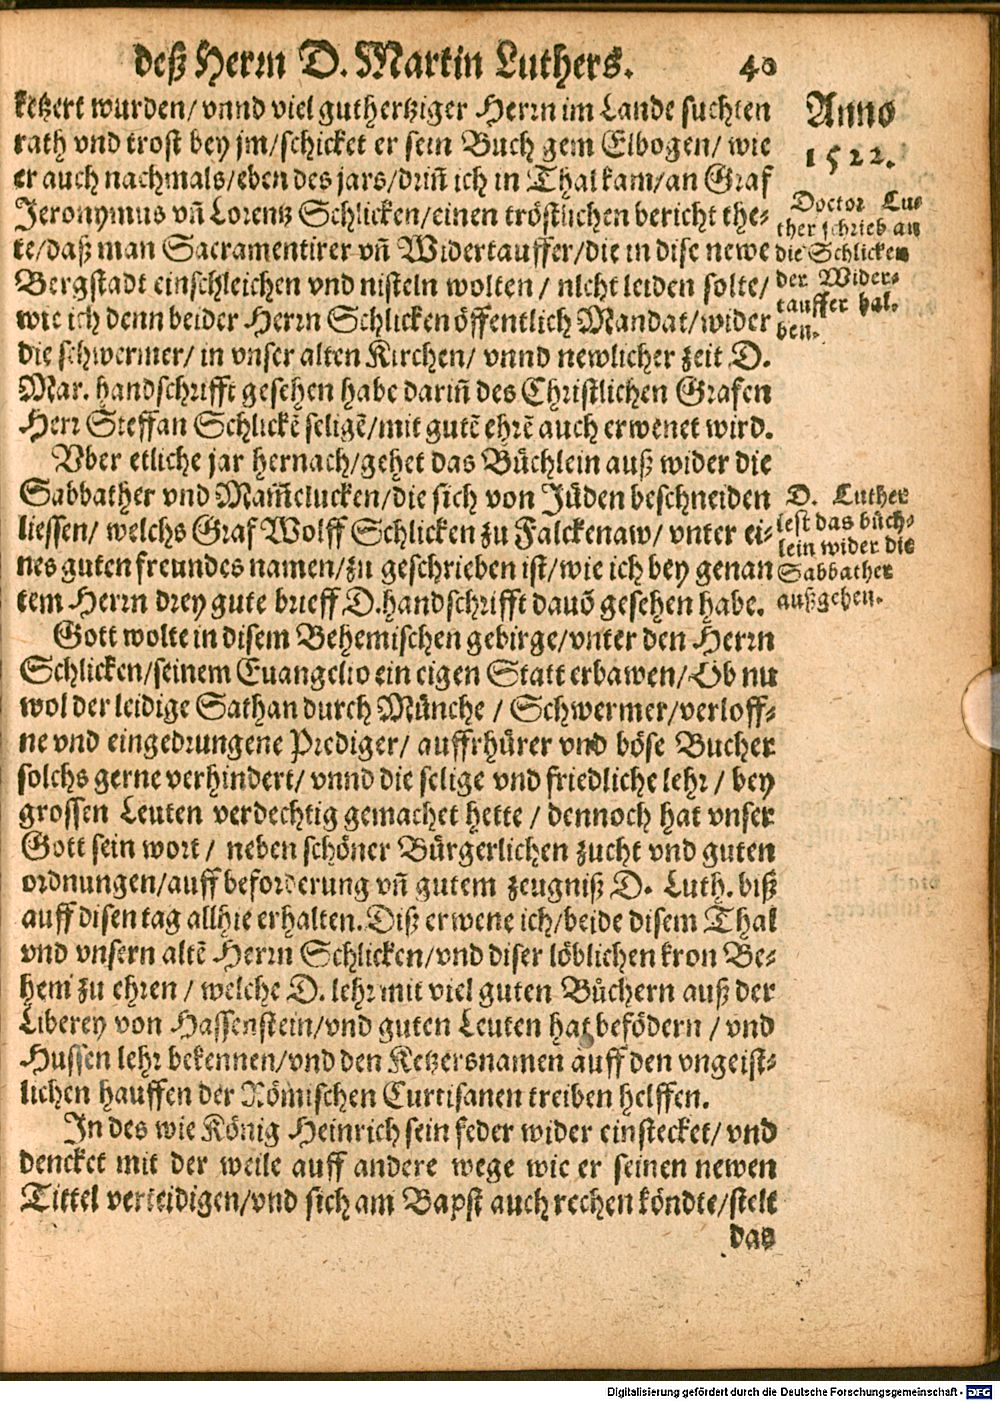 deß Herrn D. Martin Luthers. 40
ketzert wurden/ vnnd viel guthertziger Herrn im Lande suchten
rath vnd trost bey jm/schicket er sein Buch gem Elbogen/ wie
er auch nachmals/eben des jars/drin̄ ich in Thal kam/an Graf
Jeronymus vn̄ Lorentz Schlicken/einen tröstlichen bericht the-
te/daß man Sacramentirer vn̄ Widertauffer/die in dise newe
Bergstadt einschleichen vnd nisteln wolten / nicht leiden solte/
wie ich denn beider Herrn Schlicken öffentlich Mandat/wider
die schwermer/ in vnser alten Kirchen/ vnnd newlicher zeit D.
Mar. handschrifft gesehen habe darin̄ des Christlichen Grafen
Herr Steffan Schlickē seligē/mit gutē ehrē auch erwenet wird.
Vber etliche jar hernach/gehet das Büchlein auß wider die
Sabbather vnd Mam̄elucken/die sich von Jüden beschneiden
liessen/ welchs Graf Wolff Schlicken zu Falckenaw/ vnter ei-
nes guten freundes namen/zu geschrieben ist/wie ich bey genan
tem Herrn drey gute brieff D.handschrifft dauō gesehen habe.
Gott wolte in disem Behemischen gebirge/vnter den Herrn
Schlicken/seinem Euangelio ein eigen Statt erbawen/Ob nu
wol der leidige Sathan durch Münche / Schwermer/verloff-
ne vnd eingedrungene Prediger/ auffrhürer vnd böse Bucher
solchs gerne verhindert/ vnnd die selige vnd friedliche lehr / bey
grossen Leuten verdechtig gemachet hette / dennoch hat vnser
Gott sein wort / neben schöner Bürgerlichen zucht vnd guten
ordnungen/auff beforderung vn̄ gutem zeugniß D. Luth. biß
auff disen tag allhie erhalten. Diß erwene ich/beide disem Thal
vnd vnsern altē Herrn Schlicken/vnd diser löblichen kron Be-
hem zu ehren / welche D. lehr mit viel guten Büchern auß der
Liberey von Hassenstein/vnd guten Leuten hat befödern / vnd
Hussen lehr bekennen/vnd den Ketzersnamen auff den vngeist-
lichen hauffen der Römischen Curtisanen treiben helffen.
In des wie König Heinrich sein feder wider einstecket/ vnd
dencket mit der weile auff andere wege wie er seinen newen
Tittel verteidigen/vnd sich am Bapst auch rechen köndte/stelt
das
Anno
1522.
Doctor Lu-
ther schrieb an
die Schlicken
der Wider-
tauffer hal-
ben.
D. Luther
lest das büch-
lein wider die
Sabbather
außgehen.
Digitalisierung gefördert durch die Deutsche Forschungsgemeinschaft - DFG